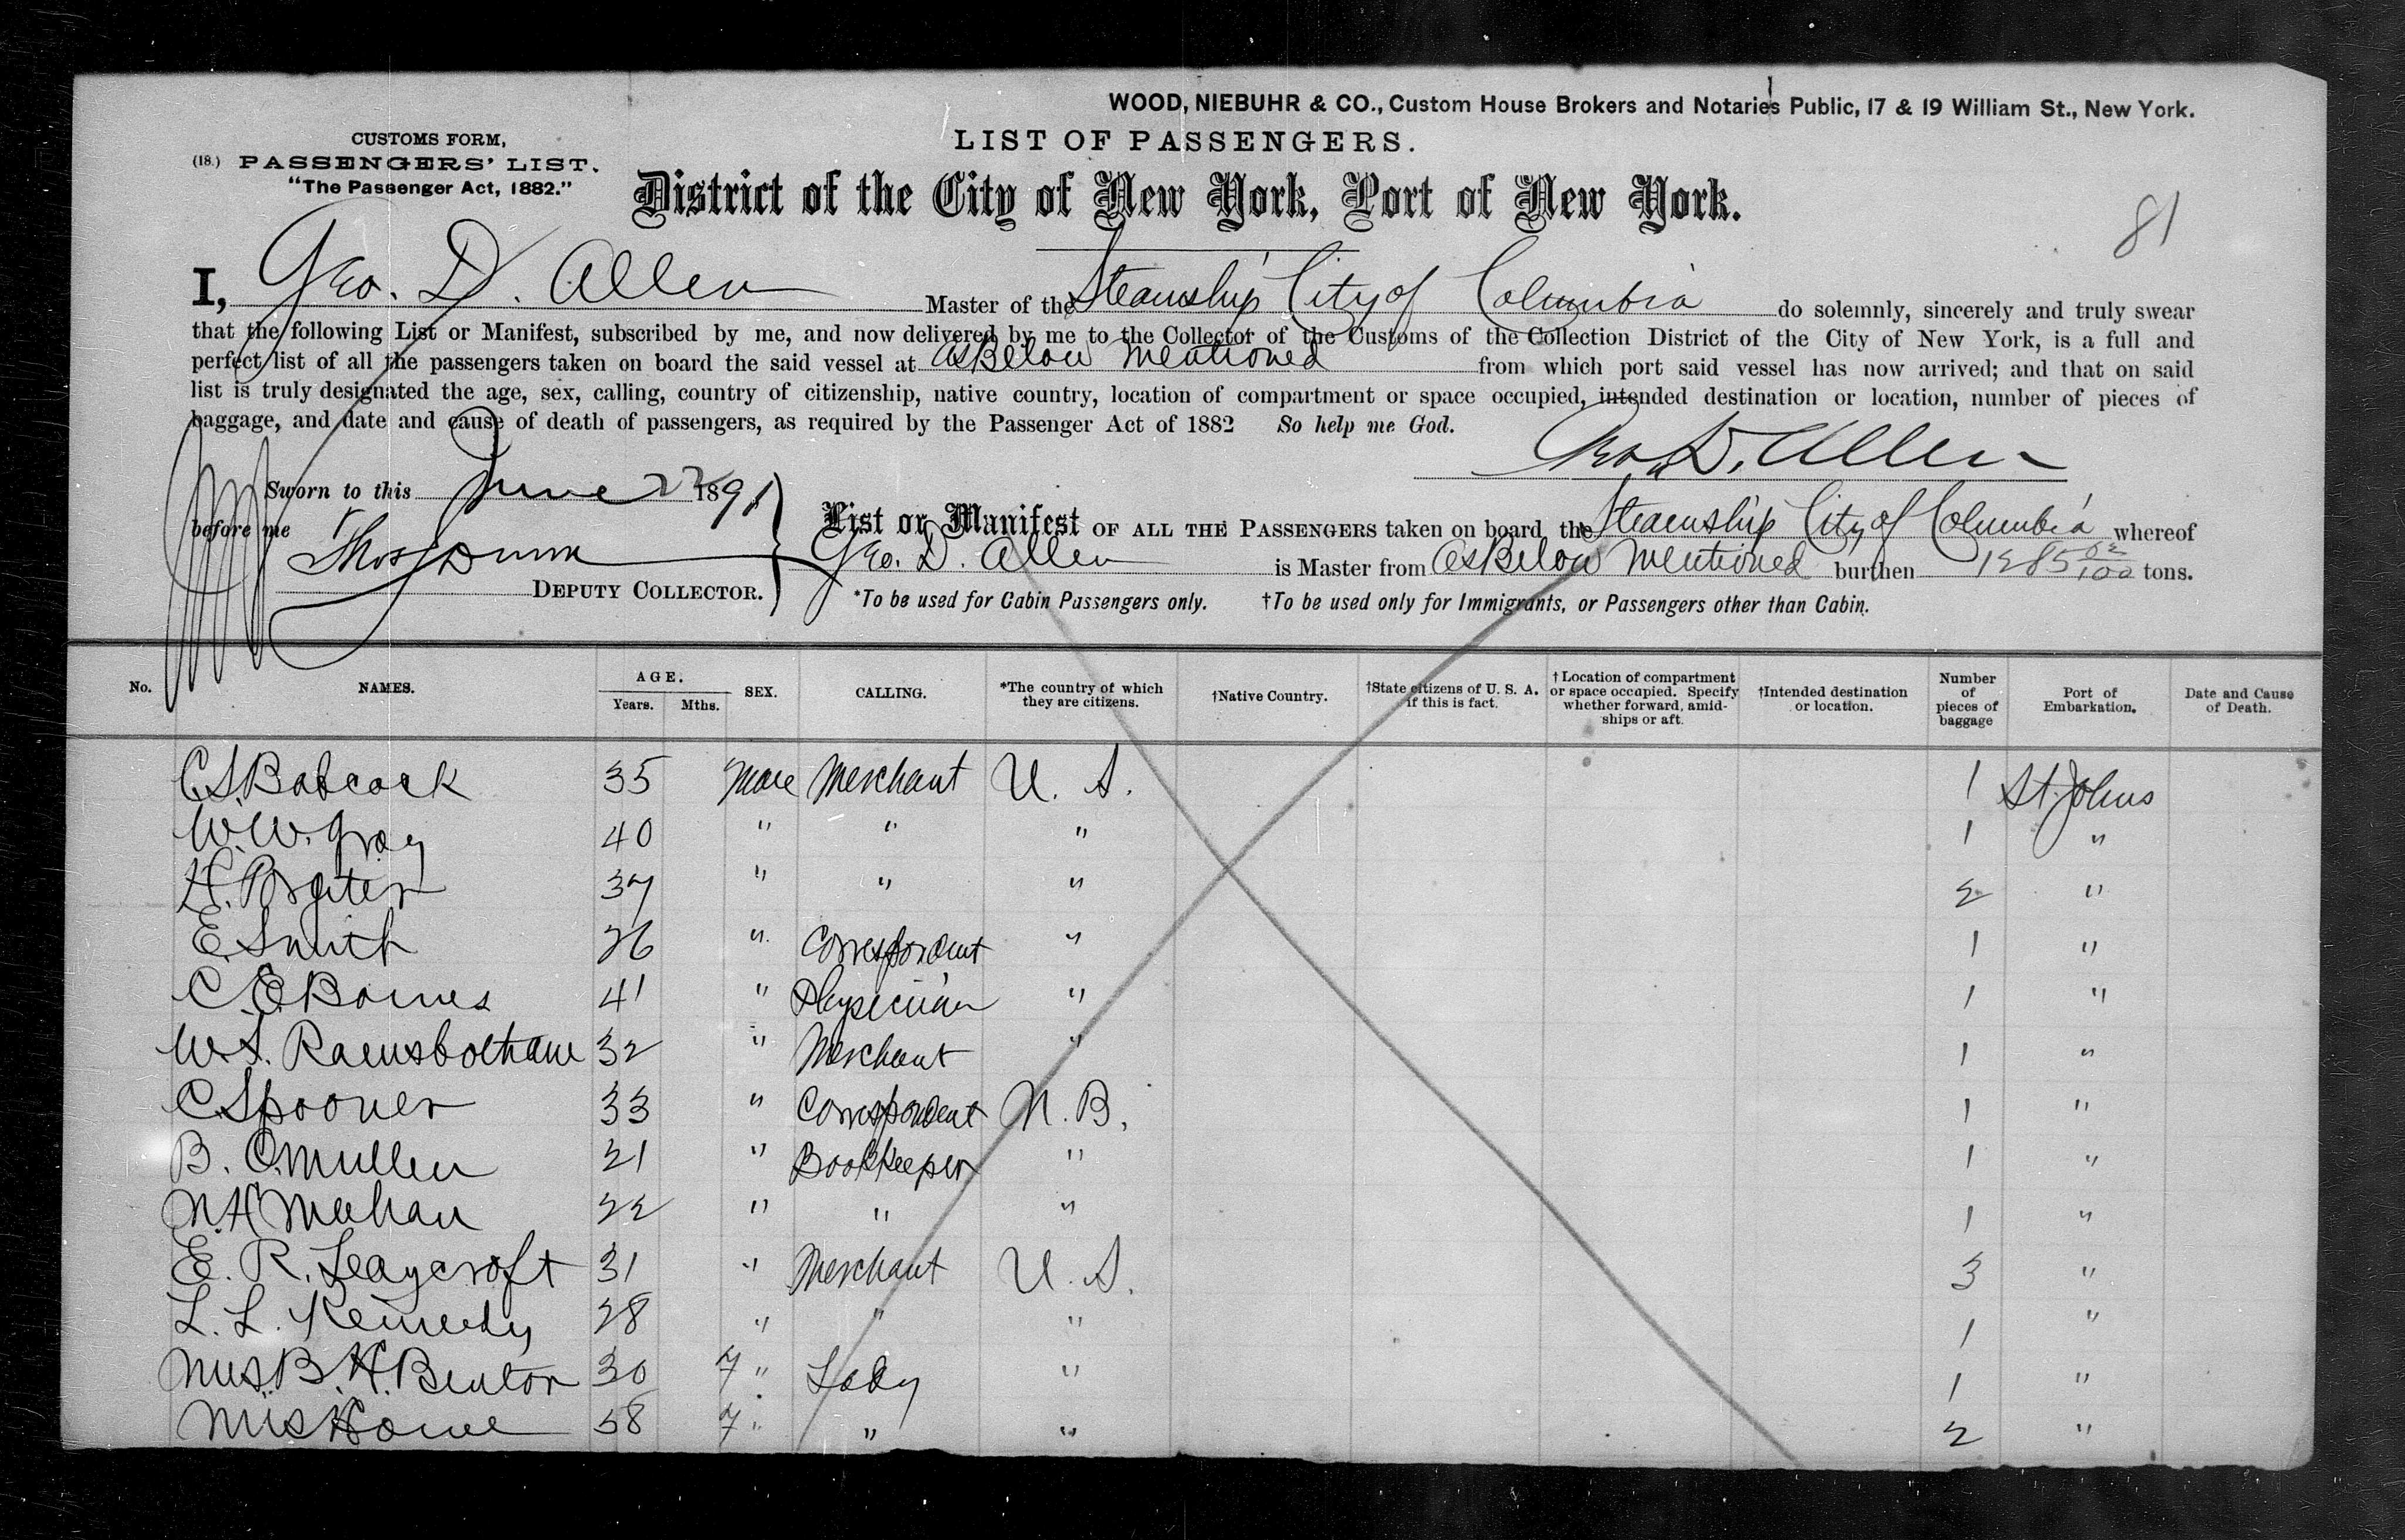 WOOD, NIEBUHR & CO., Custom House Brokers and Notaries Public, 17 & 19 William St., New York.
CUSTOMS FORM,
(18.) PASSENGERS' LIST.
"The Passenger Act, 1882."
LIST OF PASSENGERS.
District of the City of New York, Port of New York.
81
I, Geo. D. Allen Master of the Steamship City of Columbia do solemnly, sincerely and truly swear
that the following List or Manifest, subscribed by me, and now delivered by me to the Collector of the Customs of the Collection District of the City of New York, is a full and
perfect list of all the passengers taken on board the said vessel at as Below Mentioned from which port said vessel has now arrived; and that on said
list is truly designated the age, sex, calling, country of citizenship, native country, location of compartment or space occupied, intended destination or location, number of pieces of
baggage, and date and cause of death of passengers, as required by the Passenger Act of 1882 So help me God.
Geo. D. Allen
Sworn to this June 22 1891
before me
Thos Dunn
DEPUTY COLLECTOR.
List or Manifest OF ALL THE PASSENGERS taken on board the Steamship City of Columbia whereof
Geo. D. Allen is Master from as Below Mentioned burthen 1285 tons.
*To be used for Cabin Passengers only. †To be used only for Immigrants, or Passengers other than Cabin.
No. NAMES. AGE. Years. Mths. SEX. CALLING. *The country of which they are citizens. †Native Country. †State citizens of U. S. A. if this is fact. †Location of compartment or space occupied. Specify whether forward, amidships or aft. †Intended destination or location. Number of pieces of baggage Port of Embarkation. Date and Cause of Death.
C. S. Babcock 35 Male Merchant U. S. 1 St. Johns
W. W. Gray 40 " " " 1 "
H. 37 " " " 2 "
E. Smith 26 " Correspondent " 1 "
C. E. 41 " Physician " 1 "
W. S. Ramsbotham 32 " Merchant " 1 "
C. Spooner 33 " Correspondent N. B. 1 "
B. C. Mullen 21 " Bookkeeper " 1 "
N. H. Meehan 22 " " " 1 "
E. R. Leaycroft 31 " Merchant U. S. 3 "
L. L. Kennedy 28 " " " 1 "
Mrs B. H. Benton 30 F " Lady " 1 "
58 F " " " 2 "